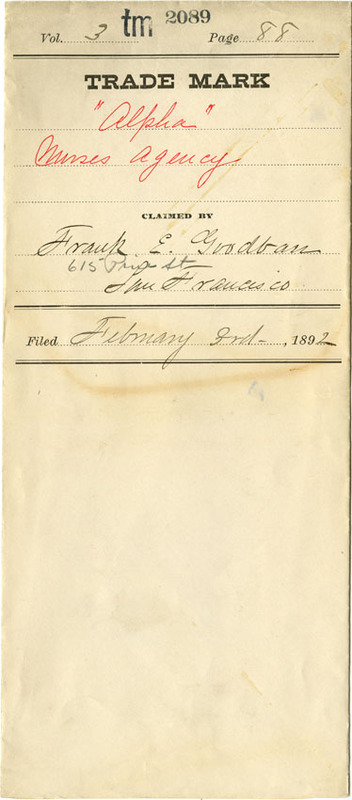 tm 2089
Vol. 3 Page 88
TRADE MARK
"Alpha"
Nurses Agency
CLAIMED BY
Frank E. Goodban
615 Pine St
San Francisco
Filed February 3rd, 1892